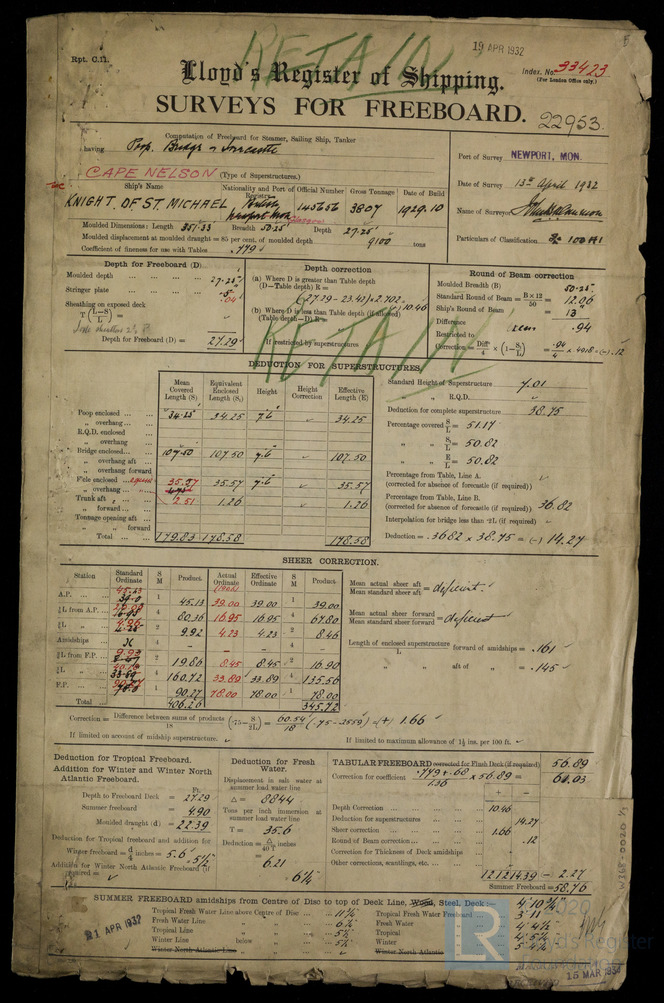 RETAIN
19 APR 1932
Rpt. C.11.
Index. No. 33423
(For London Office only.)
Lloyd's Register of Shipping.
SURVEYS FOR FREEBOARD.
22953.
Computation of Freeboard for Steamer, Sailing Ship, Tanker
having Poop, Bridge & Forecastle
CAPE NELSON (Type of Superstructures.)
Port of Survey NEWPORT, MON.
Date of Survey 13th April 1932
Name of Surveyor
Particulars of Classification 100 A1
Ship's Name
Nationality and Port of Registry
Official Number
Gross Tonnage
Date of Build
KNIGHT OF ST MICHAEL
British
Newport Mon
145656
3807
1929.10
Moulded Dimensions: Length 351.33 Breadth 50.25 Depth 27.25
Moulded displacement at moulded draught = 85 per cent. of moulded depth 9100 tons
Coefficient of fineness for use with Tables .779
Depth for Freeboard (D)
Moulded depth 27.25
Stringer plate .04
Sheathing on exposed deck
T (L-S/L) =
Depth for Freeboard (D) = 27.29
Depth correction
(a) Where D is greater than Table depth
(D-Table depth) R =
(27.29 - 23.42) × 2.702 = 10.46
(b) Where D is less than Table depth (if allowed)
(Table depth-D) R =
If restricted by superstructures
Round of Beam correction
Moulded Breadth (B) 50.25
Standard Round of Beam = B×12/50 = 12.06
Ship's Round of Beam = 13
Difference excess .94
Restricted to
Correction = Diff/4 × (1-S/L) = .94/4 × .4918 = (-) .12
RETAIN
DEDUCTION FOR SUPERSTRUCTURES
Mean Covered Length (S)
Equivalent Enclosed Length (S₁)
Height
Height Correction
Effective Length (E)
Poop enclosed 34.25 34.25 7.6 34.25
" overhang
R.Q.D. enclosed
" overhang
Bridge enclosed 107.50 107.50 7.6 107.50
" overhang aft
" overhang forward
F'cle enclosed 35.57 35.57 7.6 35.57
" overhang 2.51 1.26 1.26
Trunk aft
" forward
Tonnage opening aft
" " forward
Total 179.83 178.58 178.58
Standard Height of Superstructure 7.01
" " R.Q.D.
Deduction for complete superstructure 38.75
Percentage covered S/L = 51.17
" " S₁/L = 50.82
" " E/L = 50.82
Percentage from Table, Line A.
(corrected for absence of forecastle (if required))
Percentage from Table, Line B. 36.82
(corrected for absence of forecastle (if required))
Interpolation for bridge less than ·2L (if required)
Deduction = .3682 × 38.75 = (-) 14.27
SHEER CORRECTION.
Station
Standard Ordinate
S M
Product
Actual Ordinate
Effective Ordinate
S M
Product
A.P. 45.13 1 45.13 39.00 39.00 1 39.00
⅙L from A.P. 20.09 4 80.36 16.95 16.95 4 67.80
⅓L " 4.96 2 9.92 4.23 4.23 2 8.46
Amidships 4 - - - 4 -
⅓L from F.P. 9.93 2 19.86 8.45 8.45 2 16.90
⅙L " 4 160.72 33.89 33.89 4 135.56
F.P. 90.27 1 90.27 78.00 78.00 1 78.00
Total 406.26 345.72
Mean actual sheer aft
Mean standard sheer aft = deficient.
Mean actual sheer forward
Mean standard sheer forward = deficient
Length of enclosed superstructure forward of amidships = .161
L
" " aft of " = .145
Correction = Difference between sums of products/18 (·75 - S/2L) = 60.54/18 (.75 - .2559) = (+) 1.66
If limited on account of midship superstructure.
If limited to maximum allowance of 1½ ins. per 100 ft.
Deduction for Tropical Freeboard.
Addition for Winter and Winter North Atlantic Freeboard.
Ft.
Depth to Freeboard Deck = 27.29
Summer freeboard = 4.90
Moulded draught (d) = 22.39
Deduction for Tropical freeboard and addition for
Winter freeboard = d/4 inches = 5.6 5½
Addition for Winter North Atlantic Freeboard (if required) =
Deduction for Fresh Water.
Displacement in salt water at summer load water line
Δ = 8844
Tons per inch immersion at summer load water line
T = 35.6
Deduction = Δ/40 T inches
= 6.21
6¼
TABULAR FREEBOARD corrected for Flush Deck (if required) 56.89
Correction for coefficient .779 + .68/1.36 × 56.89 = 61.03
+ -
Depth Correction 10.46
Deduction for superstructures 14.27
Sheer correction 1.66
Round of Beam correction .12
Correction for Thickness of Deck amidships
Other corrections, scantlings, etc.
12.12 14.39 - 2.27
Summer Freeboard = 58.76
SUMMER FREEBOARD amidships from Centre of Disc to top of Deck Line, Wood, Steel, Deck: 4' 10¾"
Tropical Fresh Water Line above Centre of Disc 11¾
Fresh Water Line " " 6¼
Tropical Line " " 5½
Winter Line below " " 5½
Winter North Atlantic Line " "
Tropical Fresh Water Freeboard 3' 11"
Fresh Water " 4' 4½
Tropical " 4' 5¼
Winter " 5' 4¼
Winter North Atlantic "
21 APR 1932
15 MAR 1934
W268-0020 1/2
LR
2020
Lloyd's Register